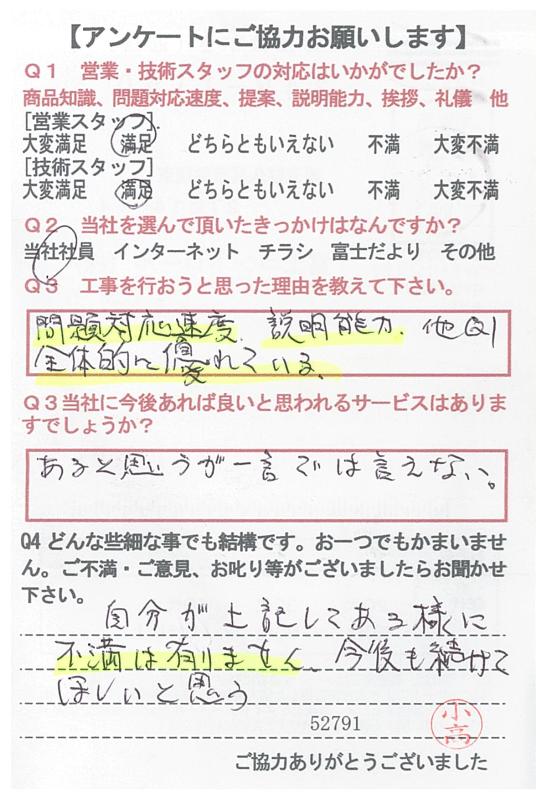 【アンケートにご協力お願いします】
Q1 営業・技術スタッフの対応はいかがでしたか?
商品知識、問題対応速度、提案、説明能力、挨拶、礼儀 他
[営業スタッフ]
大変満足 満足 どちらともいえない 不満 大変不満
[技術スタッフ]
大変満足 満足 どちらともいえない 不満 大変不満
Q2 当社を選んで頂いたきっかけはなんですか?
当社社員 インターネット チラシ 富士だより その他
Q3 工事を行おうと思った理由を教えて下さい。
問題対応速度、説明能力、他より
全体的に優れている、
Q3当社に今後あれば良いと思われるサービスはありま
すでしょうか?
あると思うが一言では言えない。
Q4 どんな些細な事でも結構です。お一つでもかまいませ
ん。ご不満・ご意見、お叱り等がございましたらお聞かせ
下さい。
自分が上記してある様に
不満は有りません、今後も続けて
ほしいと思う
52791
小高
ご協力ありがとうございました